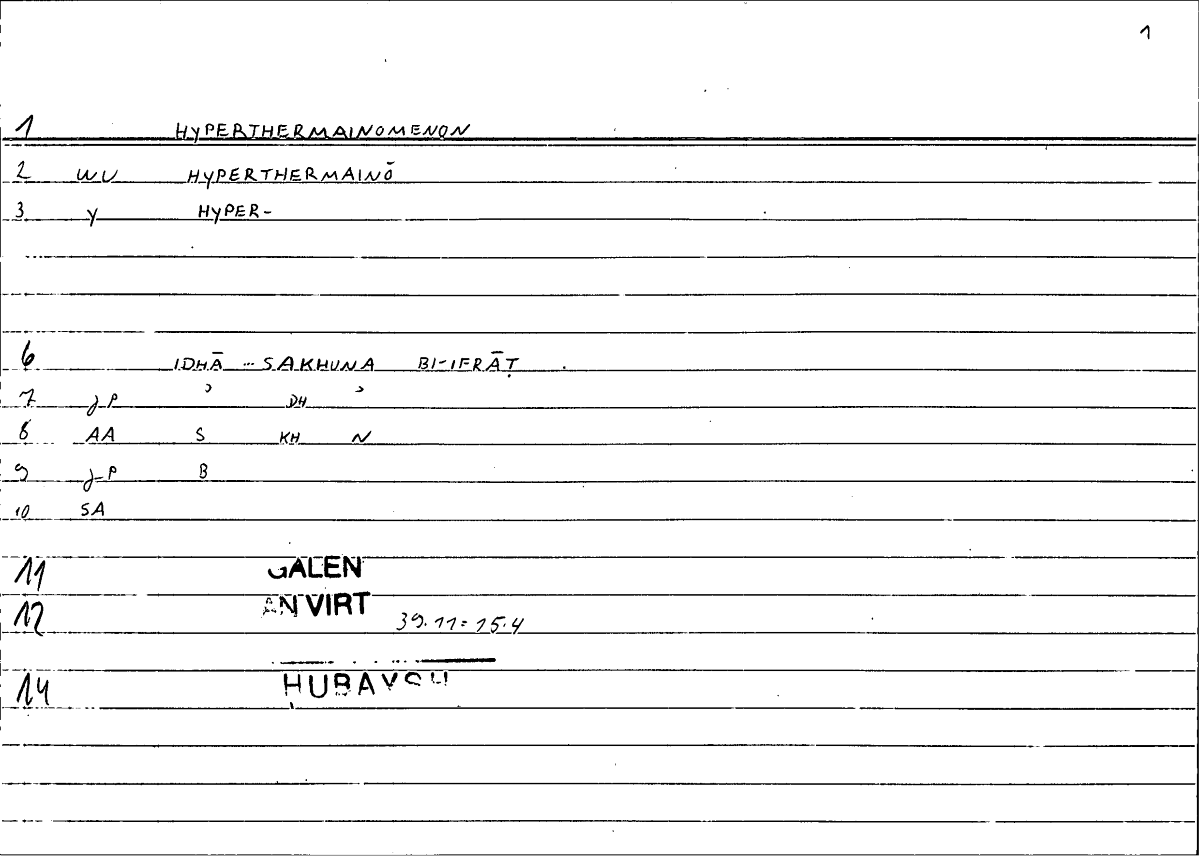 1
1 HYPERTHERMAINOMENON
2 WU HYPERTHERMAINŌ
3 Y HYPER-
6 IDHĀ ... SAKHUNA BI-IFRĀṬ .
7 JP ʾ DH ʾ
8 AA S KH N
9 JP B
10 SA
11 GALEN
12 AN VIRT 39.11 = 15.4
14 HUBAYSH